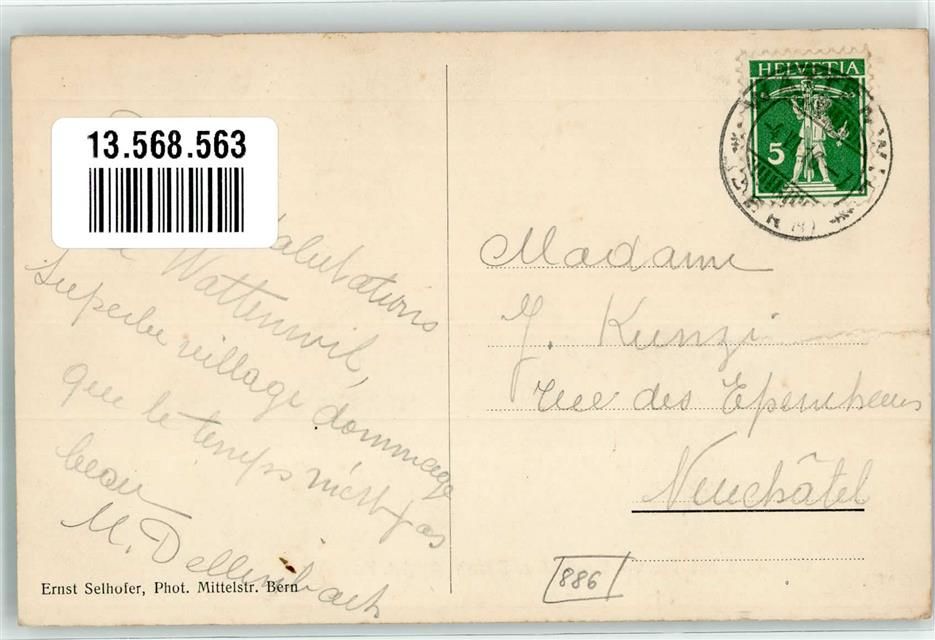 13.568.563
HELVETIA
5
salutations
de Wattenwil,
Superbe village dommage
que le temps n'est pas
beau
M. Dellenbach
Ernst Selhofer, Phot. Mittelstr. Bern
Madame
J. Kunzi
rue des Epancheurs
Neuchâtel
886